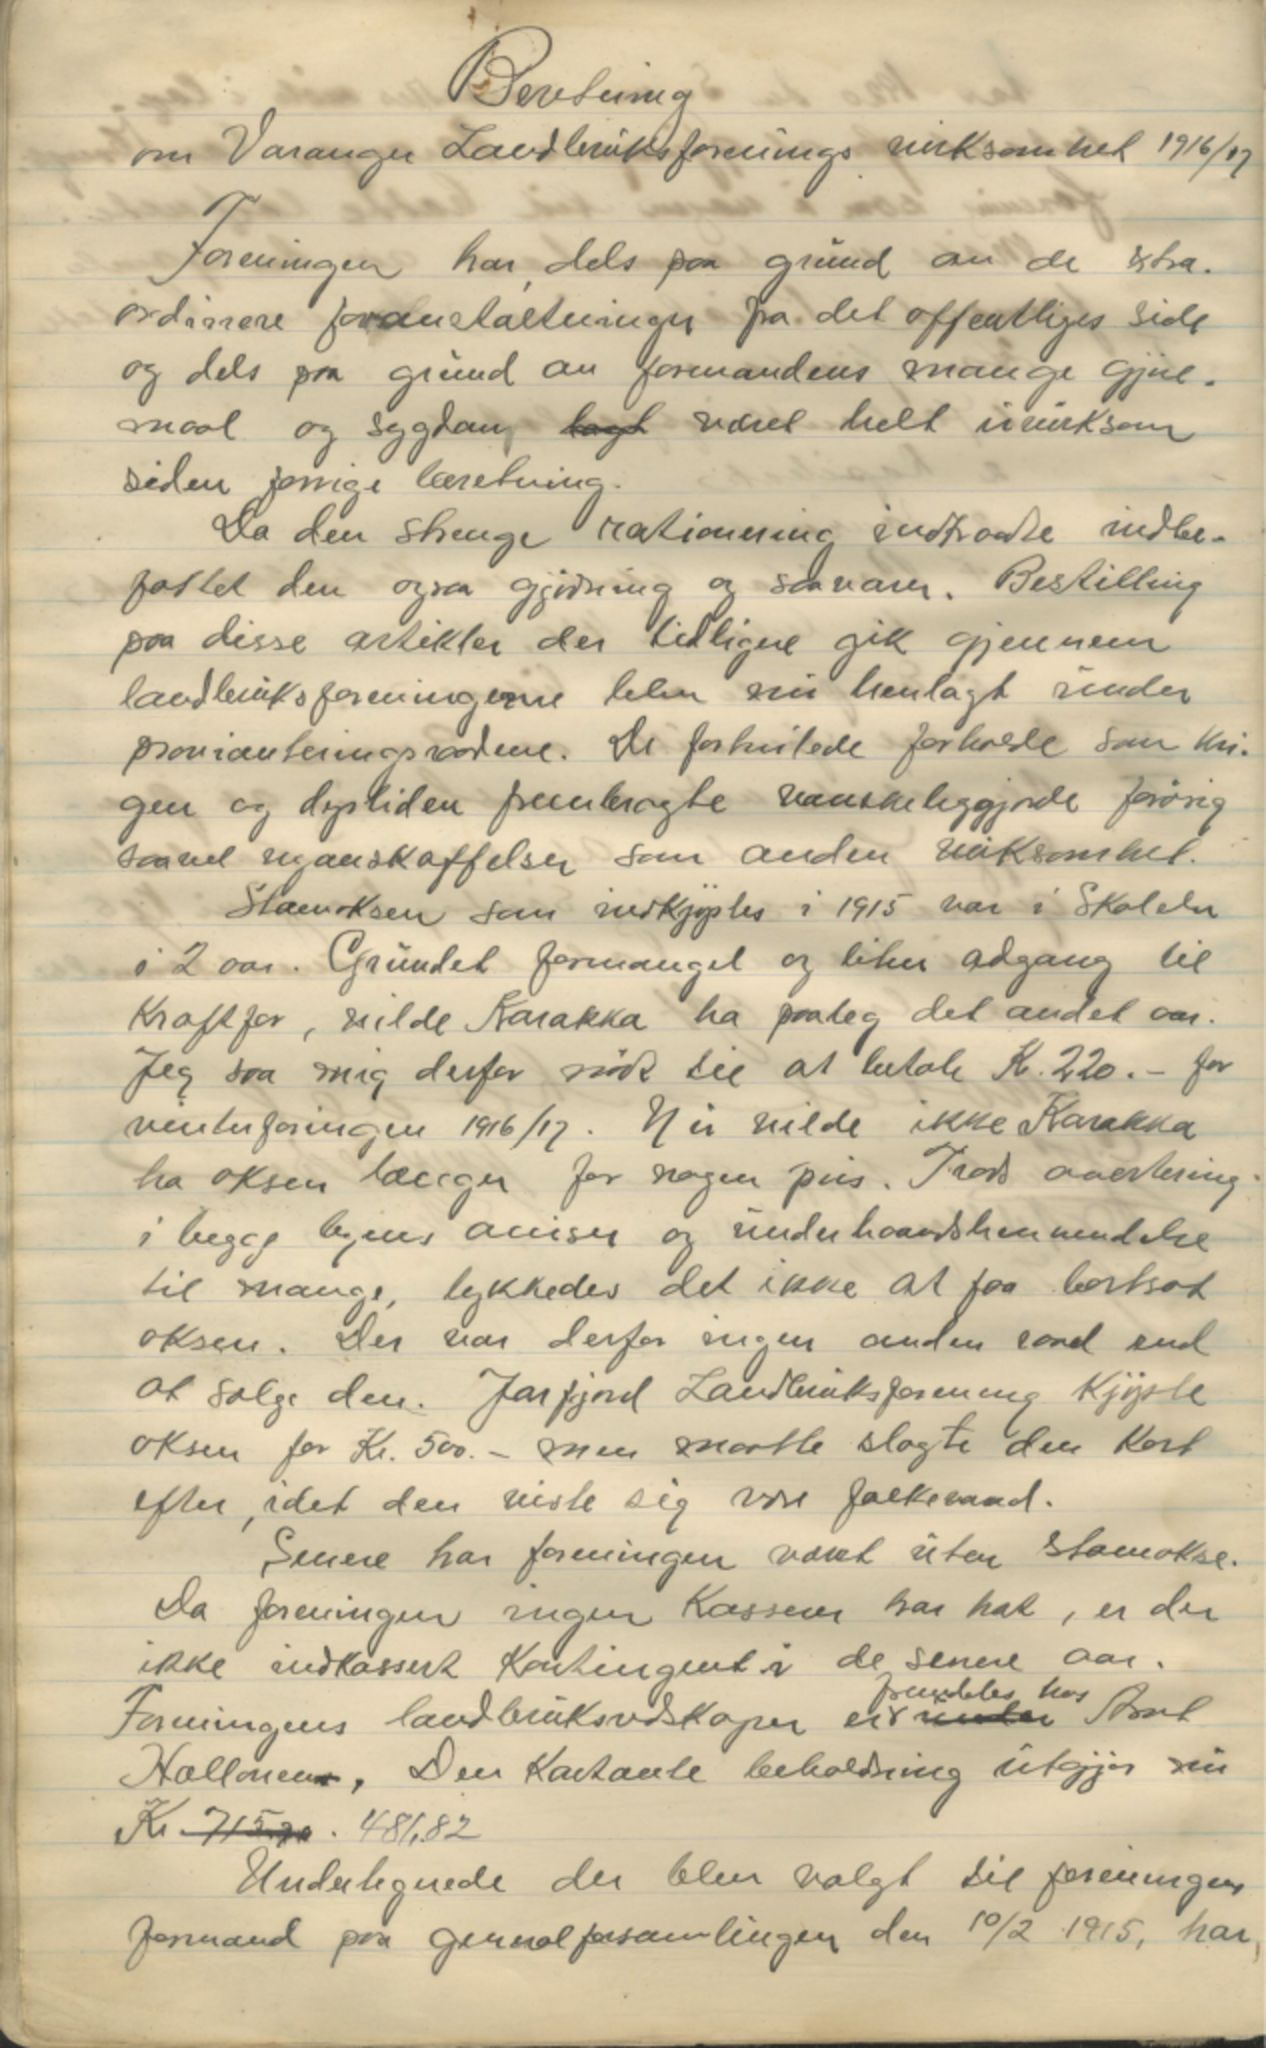 Beretning
om Varanger Landbruksforenings virksomhet 1916/17
Foreningen har, dels paa grund av de xtra-
ordinære foranstaltninger fra det offentliges side
og dels paa grund av formandens mange gjøre-
maal og sygdom, lagt været helt uvirksom
siden forrige beretning.
Da den strenge rationering indtraadte indbe-
fattet den ogsaa gjødning og saavarer. Bestilling
paa disse artikler der tidligere gik gjennem
landbruksforeningerne blev nu henlagt under
provianteringsraadene. De forhvilede forholde som kri-
gen og dyrtiden frembragte vanskeliggjorde forøvrig
saavel nyanskaffelser som anden virksomhet.
Stamoksen som indkjøptes i 1915 var i Skalelv
i 2 aar. Grundet formangel og liten adgang til
kraftfor, vilde Karakka ha paalæg det andet aar.
Jeg saa mig derfor nødt til at betale Kr. 220.- for
vinterforingen 1916/17. Nu vilde ikke Karakka
ha oksen længer for nogen pris. Trods avertering
i begge byens aviser og underhaandshenvendelse
til mange, lykkedes det ikke at faa bortsat
oksen. Der var derfor ingen anden raad end
at sælge den. Jarfjord Landbruksforening kjøpte
oksen for Kr. 500.- men maatte slagte den kort
efter, idet den viste sig være folkevand.
Senere har foreningen været uten stamokse.
Da foreningen ingen kasserer har hat, er der
ikke indkassert kontingent i de senere aar.
fremdeles hos
Foreningens landbruksredskaper er under Arnt
Hallonen. Den kontante beholdning utgjør nu
Kr. 715.70. 481,82
Undertegnede der blev valgt til foreningens
formand paa generalforsamlingen den 10/2 1915, har,